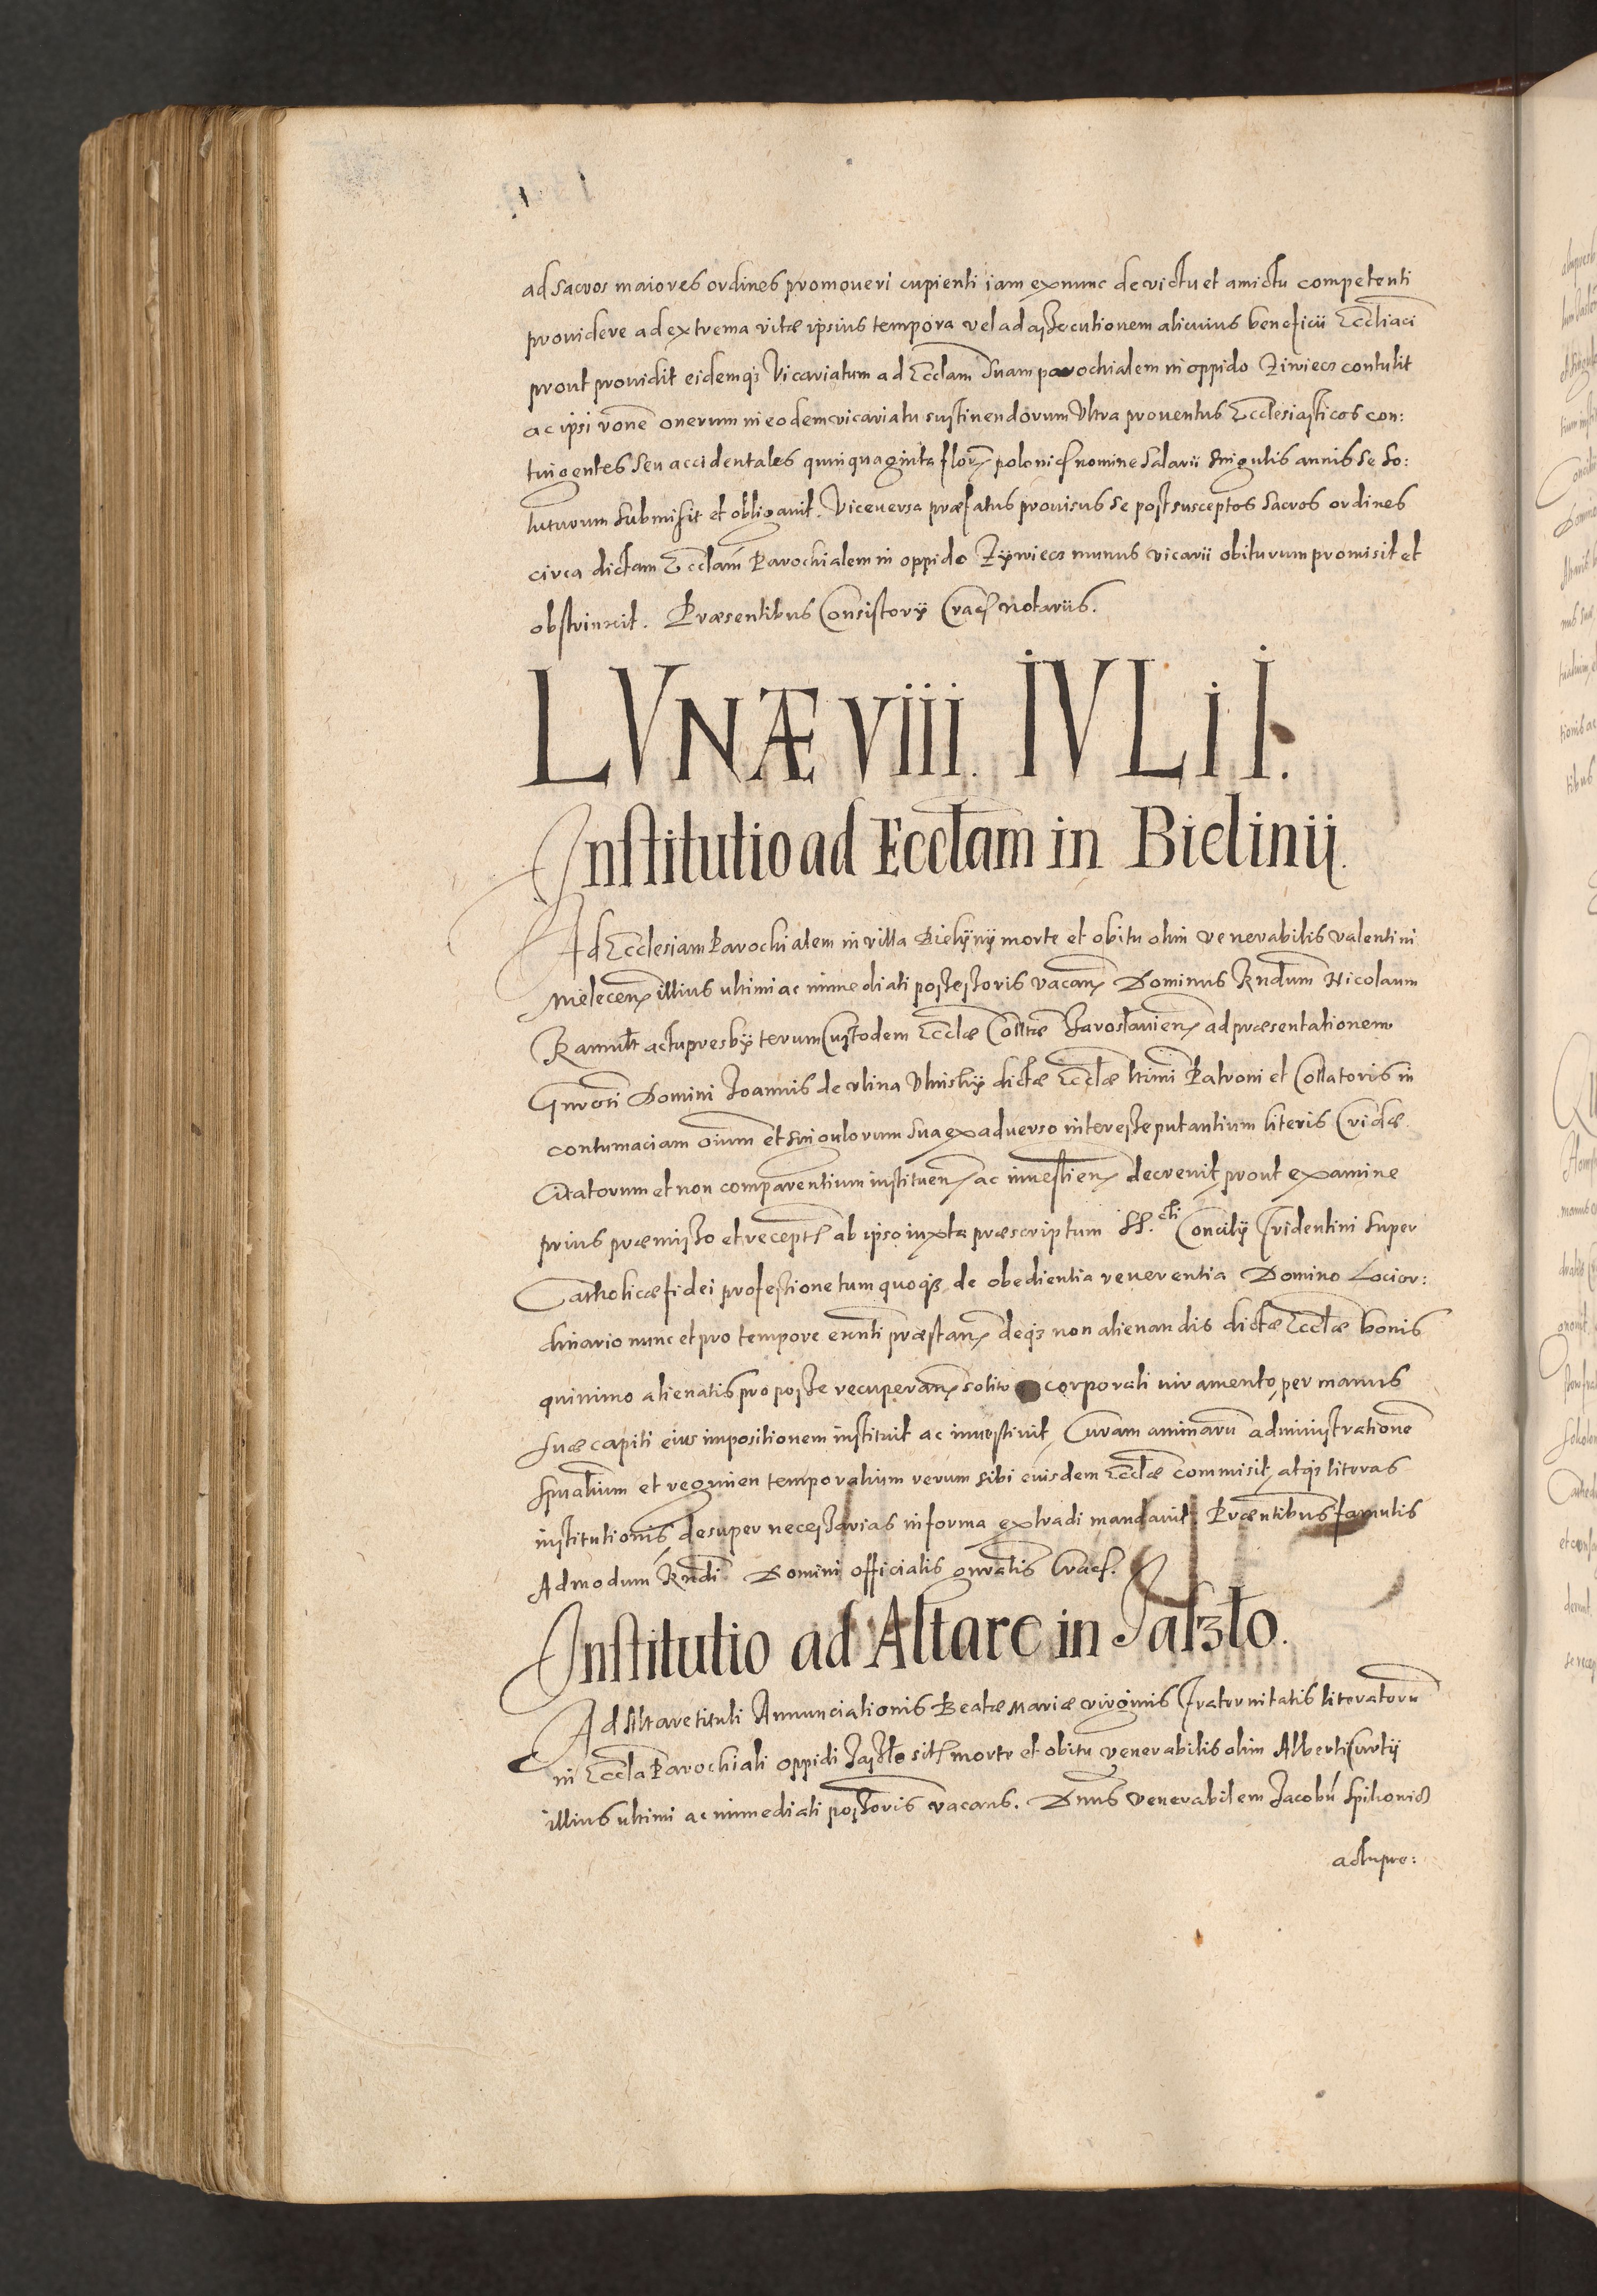 ad sacros maiores ordines promoueri cupienti iam exnunc de victu et amictu competenti
prouidere ad extrema vitæ ipsius tempora vel ad assecutionem alicuius beneficii Eccliaci
prout prouidit eidemq3 Vicariatum ad Ecclam suam parochialem in oppido Ziwiecz contulit
ac ipsi rone onerum in eodem vicariatu sustinendorum Vltra prouentus Ecclesiasticos con:
tingentes seu accidentales quinquaginta floren polonic nomine salarii singulis annis se so:
luturum submisit et obligauit. Viceuersa præfatus prouisus se post susceptos sacros ordines
circa dictam Ecclam Parochialem in oppido Zÿwiecz munus vicarii obiturum promisit et
obstrinxit. Præsentibus Consistorÿ Crac notariis.
LVNÆ VIII. IVLII.
Institutio ad Ecclam in Bielinij.
Ad Ecclesiam Parochialem in villa Bielÿnÿ morte et obitu olim venerabilis Valentini
Melecen illius ultimi ac immediati possessoris vacan Dominus Rndum Nicolaum
Ramult actu presbÿterum Custodem Ecclæ Colltæ Jaroslauien ad præsentationem
Gnrosi Domini Joannis de vlina Vlinskÿ dictæ Ecclæ ltimi Patroni et Collatoris in
contumaciam oium et singulorum sua ex aduerso interesse putantium literis Cridæ
citatorum et non comparentium instituen ac inuestien decreuit, prout examine
prius præmisso et recepta ab ipso iuxta præscriptum SS.cti Concilÿ Tridentini super
Catholicæ fidei professione tum quoq3 de obedientia reuerentia Domino Loci or:
dinario nunc et pro tempore exnti præstan deq3 non alienandis dictæ Ecclæ bonis
quinimo alienatis pro posse recuperan solito corporali iuramento, per manus
suæ capiti eius impositionem instituit ac inuestiuit, Curam animarū administratione
spualium et regimen temporalium rerum sibi eiusdem Ecclæ commisit, atq3 literas
institutionis desuper necessarias in forma extradi mandauit. Præntibus famulis
Admodum Rndi Domini officialis gnralis Crac.
Institutio ad Altare in Jaszło.
Ad Altare tituli Annunciationis Beatæ Mariæ virginis fraternitatis literatorū
in Eccla Parochiali oppidi Jaszło sit morte et obitu venerabilis olim Alberti Curtÿ
illius ultimi ac immediati possoris vacans. Dnus Venerabilem Jacobū Spikonis
actu pre: